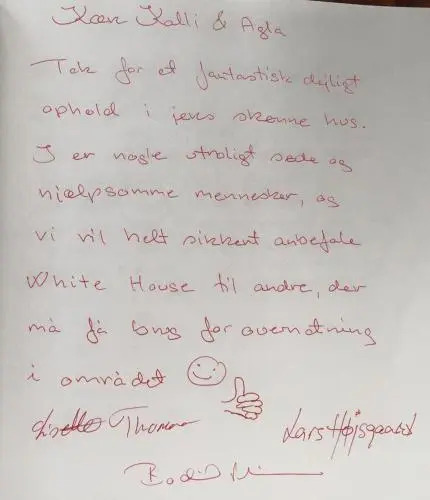 Kære Kalli & Agla
Tak for et fantastisk dejligt
ophold i jeres skønne hus.
I er nogle utroligt søde og
hjælpsomme mennesker, og
vi vil helt sikkert anbefale
White House til andre, der
må få brug for overnatning
i området
Thomas
Lars Højsgaard
Bodil